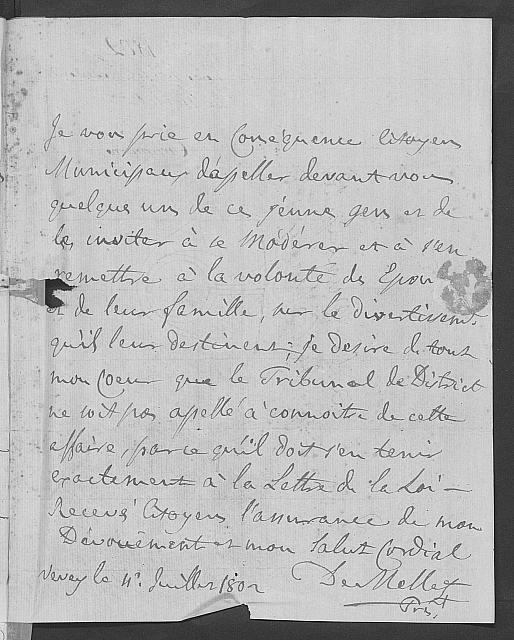 Je vous prie en Conséquence Citoyens
Municipaux d'apeller devant vous
quelques uns de ces jeunes gens et de
les inviter à se Modérer et à s'en
remettre à la volonté des Epoux
et de leur famille, sur le divertissemt
qu'ils leur destinent; je desire de tout
mon Coeur que le Tribunal de District
ne soit pas apellé à connoitre de cette
affaire, parce qu'il doit s'en tenir
exactement à la Lettre de la Loi –
Recevés Citoyens l'assurance de mon
Dévouement et mon Salut Cordial
Vevey le 11e Juillet 1802 De Mellet
Prést.